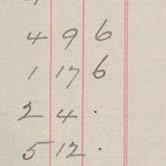 4 9 6
1 17 6
2 4 .
5 12 .